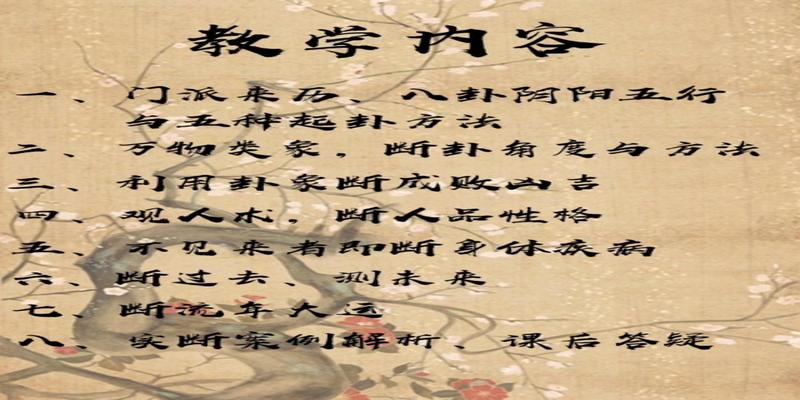 教学内容
一、门派来历、八卦阴阳五行
与五种起卦方法
二、万物类象，断卦角度与方法
三、利用卦象断成败凶吉
四、观人术，断人品性格
五、不见来者即断身体疾病
六、断过去、测未来
七、断流年大运
八、实断案例解析、课后答疑